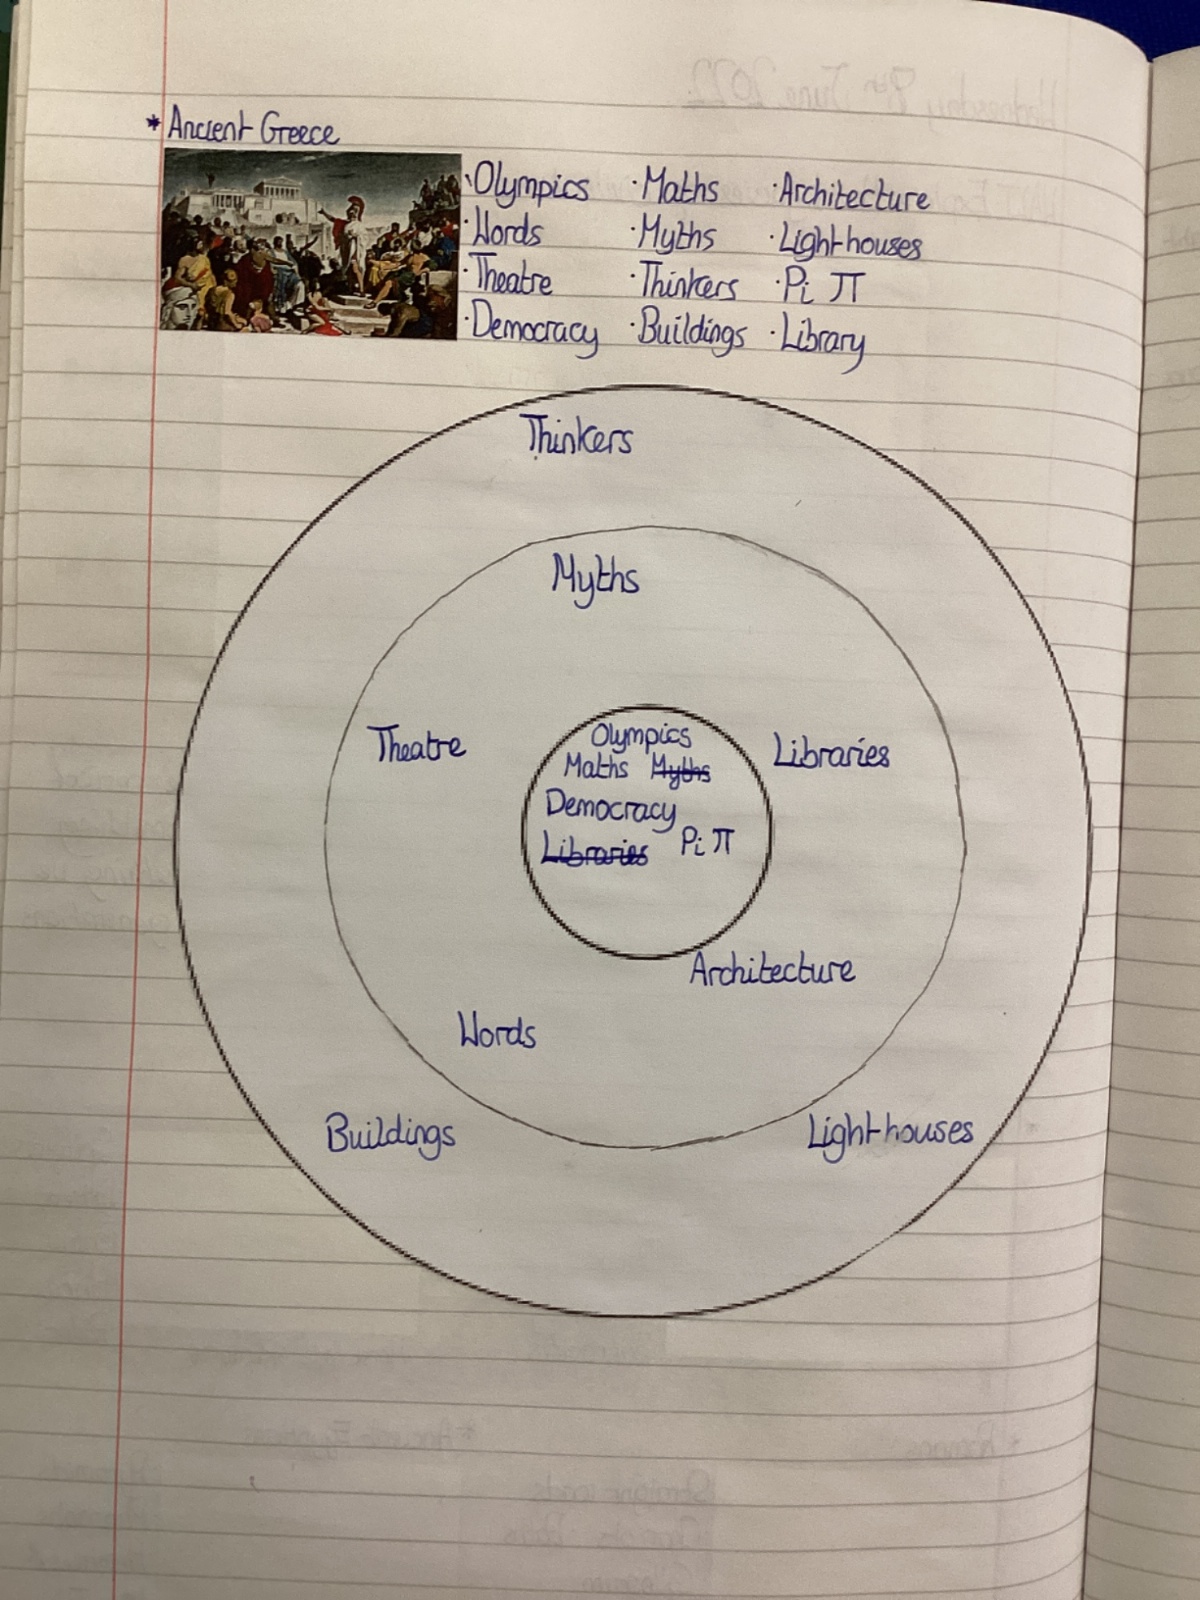 * Ancient Greece
·Olympics ·Maths ·Architecture
·Words ·Myths ·Lighthouses
·Theatre ·Thinkers ·Pi π
·Democracy ·Buildings ·Library
Thinkers
Myths
Theatre
Olympics
Maths Myths
Democracy
Libraries Pi π
Libraries
Architecture
Words
Buildings
Lighthouses